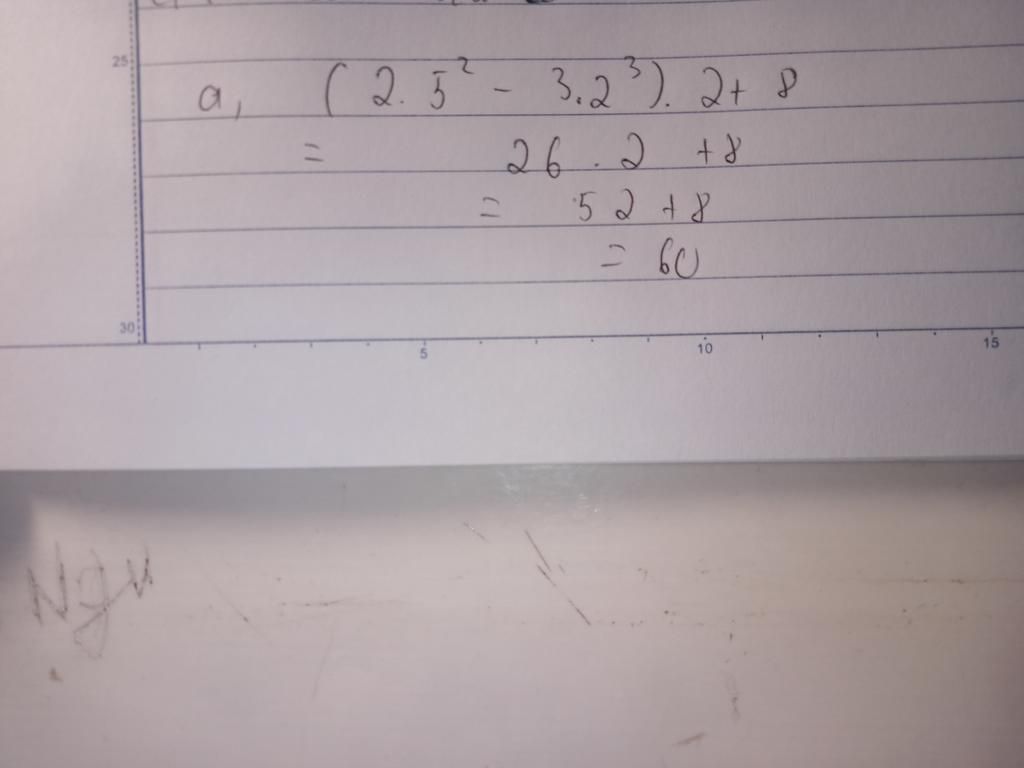 25
a, (2.5² - 3.2³).2+8
= 26.2 +8
= 52+8
= 60
30
5 10 15
Ngu